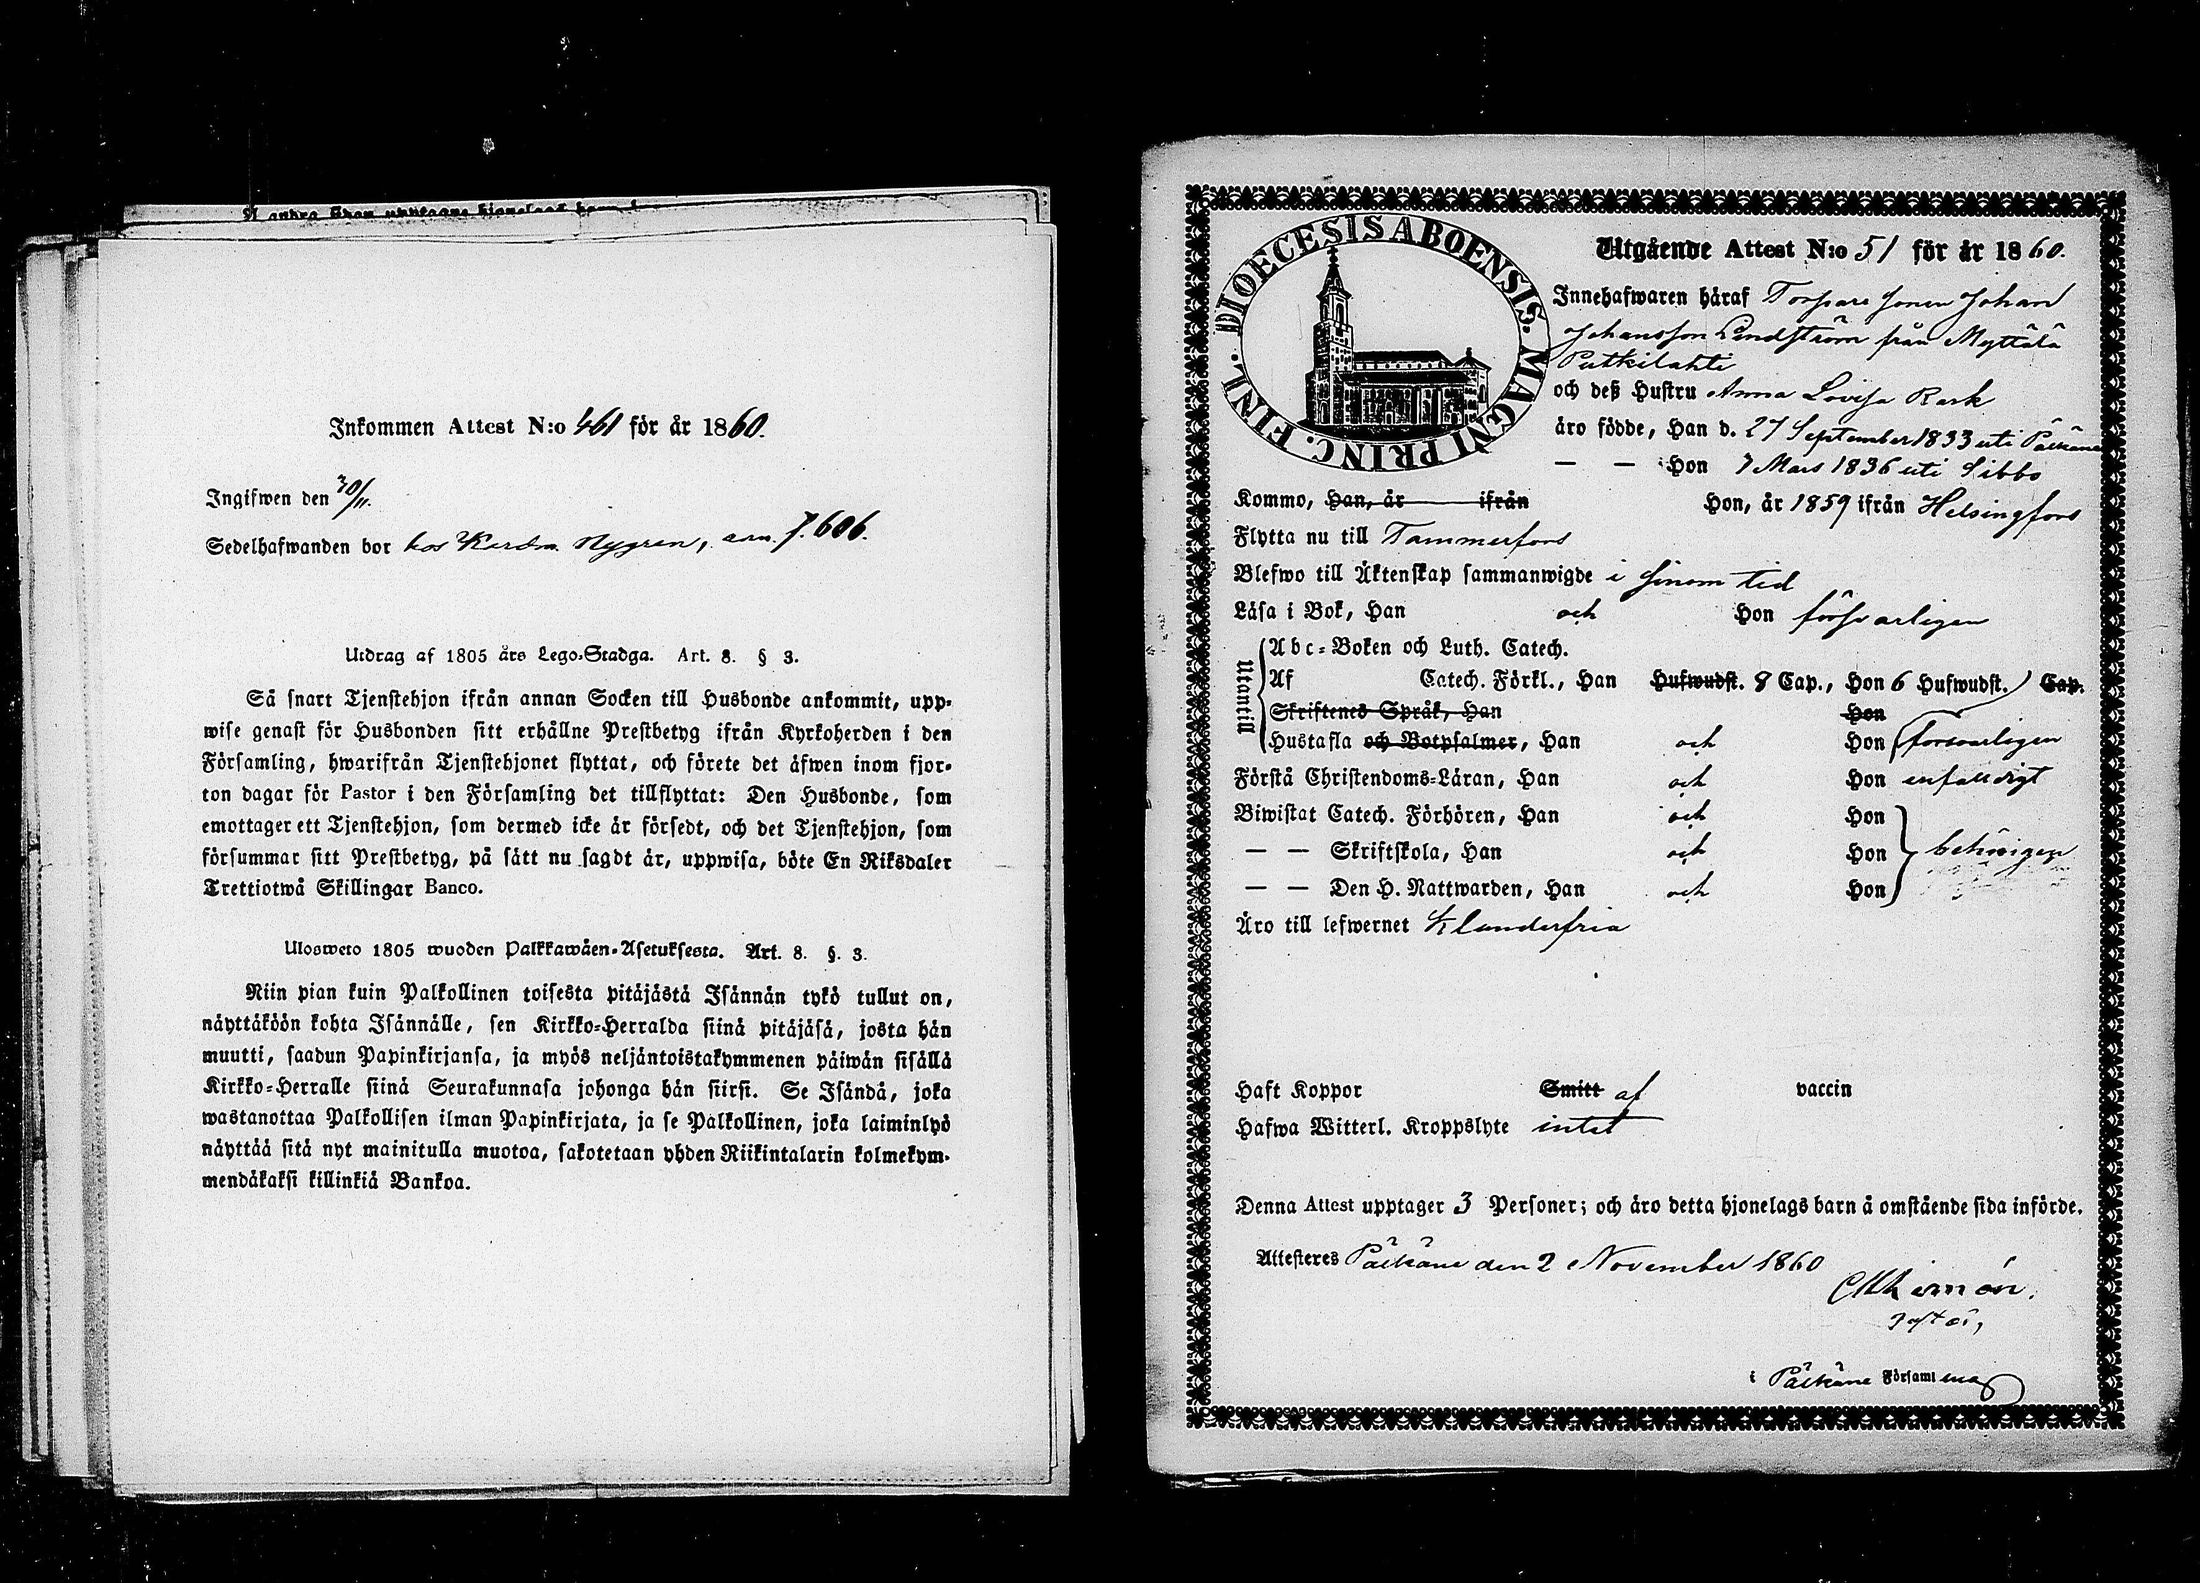 Inkommen Attest N:o 461 för år 1860.
Ingifwen den 30/11.
Sedelhafwanden bor hos Nygren, 7. 606.
Utdrag af 1805 års Lego-Stadga. Art. 8. § 3.
Så snart Tjenstehjon ifrån annan Socken till Husbonde ankommit, upp-
wise genast för Husbonden sitt erhållne Prestbetyg ifrån Kyrkoherden i den
Församling, hwarifrån Tjenstehjonet flyttat, och förete det äfwen inom fjor-
ton dagar för Pastor i den Församling det tillflyttat: Den Husbonde, som
emottager ett Tjenstehjon, som dermed icke är försedt, och det Tjenstehjon, som
försummar sitt Prestbetyg, på sätt nu sagdt är, uppwisa, böte En Riksdaler
Trettiotwå Skillingar Banco.
Ulosweto 1805 wuoden Palkkawäen-Asetuksesta. Art. 8. §. 3.
Niin pian kuin Palkollinen toisesta pitäjästä Isännän tykö tullut on,
näyttäköön kohta Isännälle, sen Kirkko-Herralda siinä pitäjäsä, josta hän
muutti, saadun Papinkirjansa, ja myös neljäntoistakymmenen päiwän sisällä
Kirkko-Herralle siinä Seurakunnasa johonga hän siirsi. Se Isändä, joka
wastanottaa Palkollisen ilman Papinkirjata, ja se Palkollinen, joka laiminlyö
näyttää sitä nyt mainitulla muotoa, sakotetaan yhden Riikintalarin kolmekym-
mendäkaksi killinkiä Bankoa.
DIOECESIS ABOENSIS. MAGNI PRINC. FINL.
Utgående Attest N:o 51 för år 1860.
Innehafwaren häraf Torpare sonen Johan
Johansson Lindström från Myttälä
Putkilahti
och deß Hustru Anna Lovisa Rask
äro födde, Han d. 27 September 1833 uti Pälkäne
— — Hon 7 Mars 1836 uti Sibbo
Kommo, Han, år ifrån Hon, år 1859 ifrån Helsingfors
Flytta nu till Tammerfors
Blefwo till Äktenskap sammanwigde i sinom tid
Läsa i Bok, Han och Hon försvarligen
Utantill
Abc-Boken och Luth. Catech.
Af Catech. Förkl., Han Hufwudst. 8 Cap., Hon 6 Hufwudst. Cap.
Skriftenes Språk, Han Hon
Hustafla och Botpsalmer, Han och Hon försvarligen
Förstå Christendoms-Läran, Han och Hon enfalldigt
Biwistat Catech. Förhören, Han och Hon
— — Skriftskola, Han och Hon behörigen
— — Den H. Nattwarden, Han och Hon
Äro till lefwernet Klanderfria
Haft Koppor Smitt af vaccin
Hafwa Witterl. Kroppslyte intet
Denna Attest upptager 3 Personer; och äro detta hjonelags barn å omstående sida införde.
Attesteres Pälkäne den 2 November 1860
i Pälkäne Församling